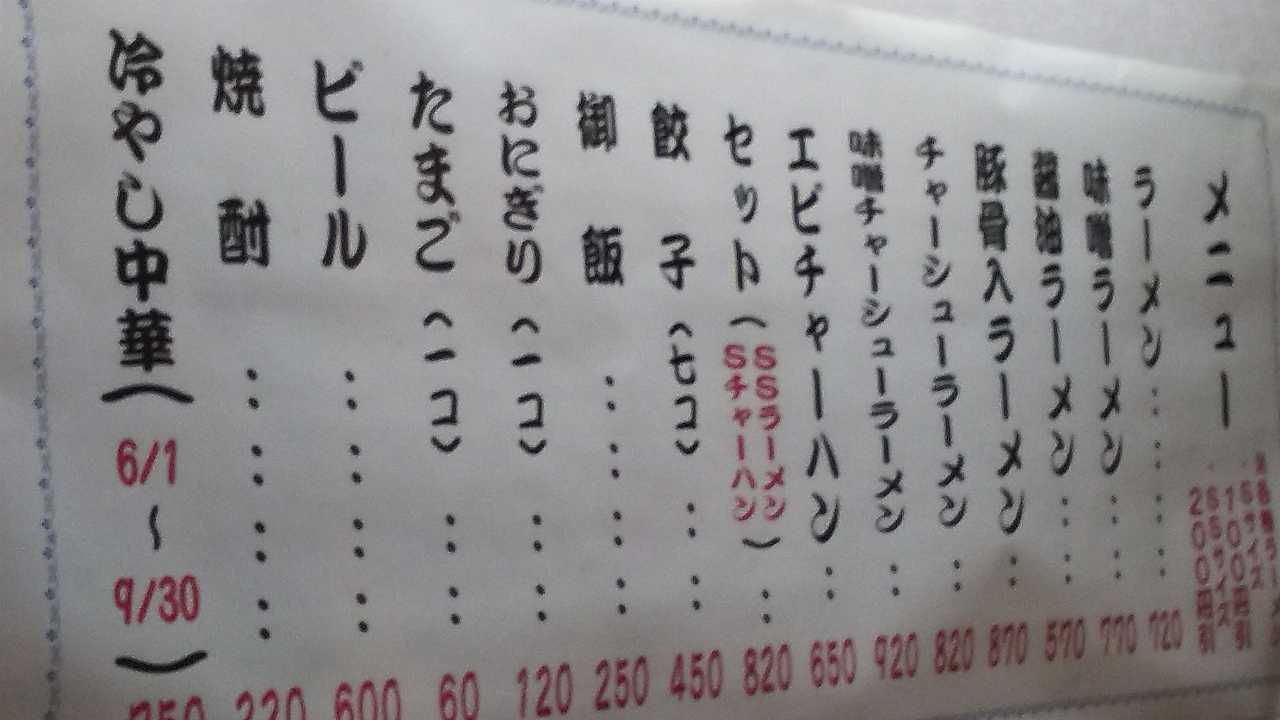 メニュー
・Sサイズ
100円引
・SSサイズ
200円引
ラーメン‥‥‥‥720
味噌ラーメン‥‥770
醤油ラーメン‥‥570
豚骨入ラーメン‥870
チャーシューラーメン‥820
味噌チャーシューラーメン‥920
エビチャーハン‥650
セット(SSラーメン Sチャーハン)‥820
餃子(七コ)‥‥450
御飯‥‥‥‥250
おにぎり(一コ)‥‥120
たまご(一コ)‥‥60
ビール‥‥‥‥600
焼酎‥‥‥‥220
冷やし中華(6/1~9/30)